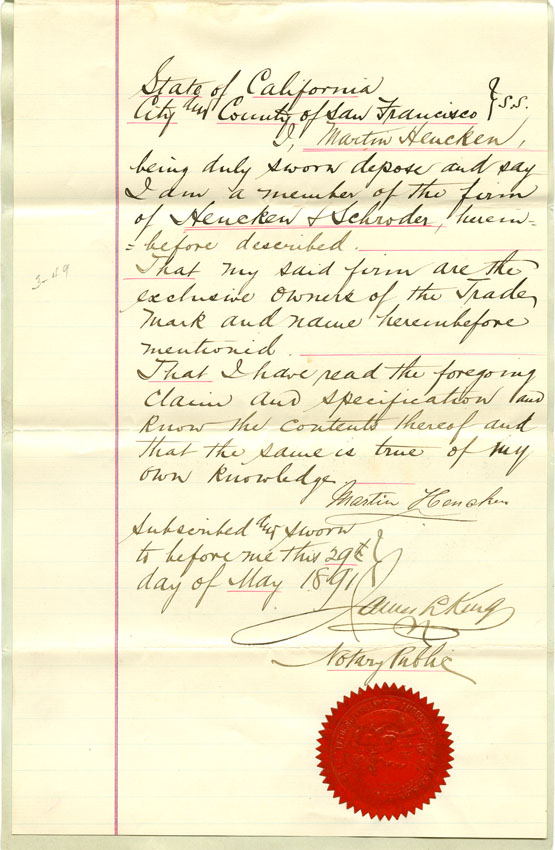 State of California
City and County of San Francisco } S.S.
I, Martin Hencken,
being duly sworn depose and say
I am a member of the firm
of Hencken & Schroder, herein=
=before described.
That my said firm are the
exclusive Owners of the Trade
Mark and name hereinbefore
mentioned.
That I have read the foregoing
Claim and Specification and
Know the contents thereof and
that the same is true of my
own knowledge
Martin Hencken
Subscribed and sworn
to before me this 29th }
day of May 1891
James L. King
Notary Public
3-49